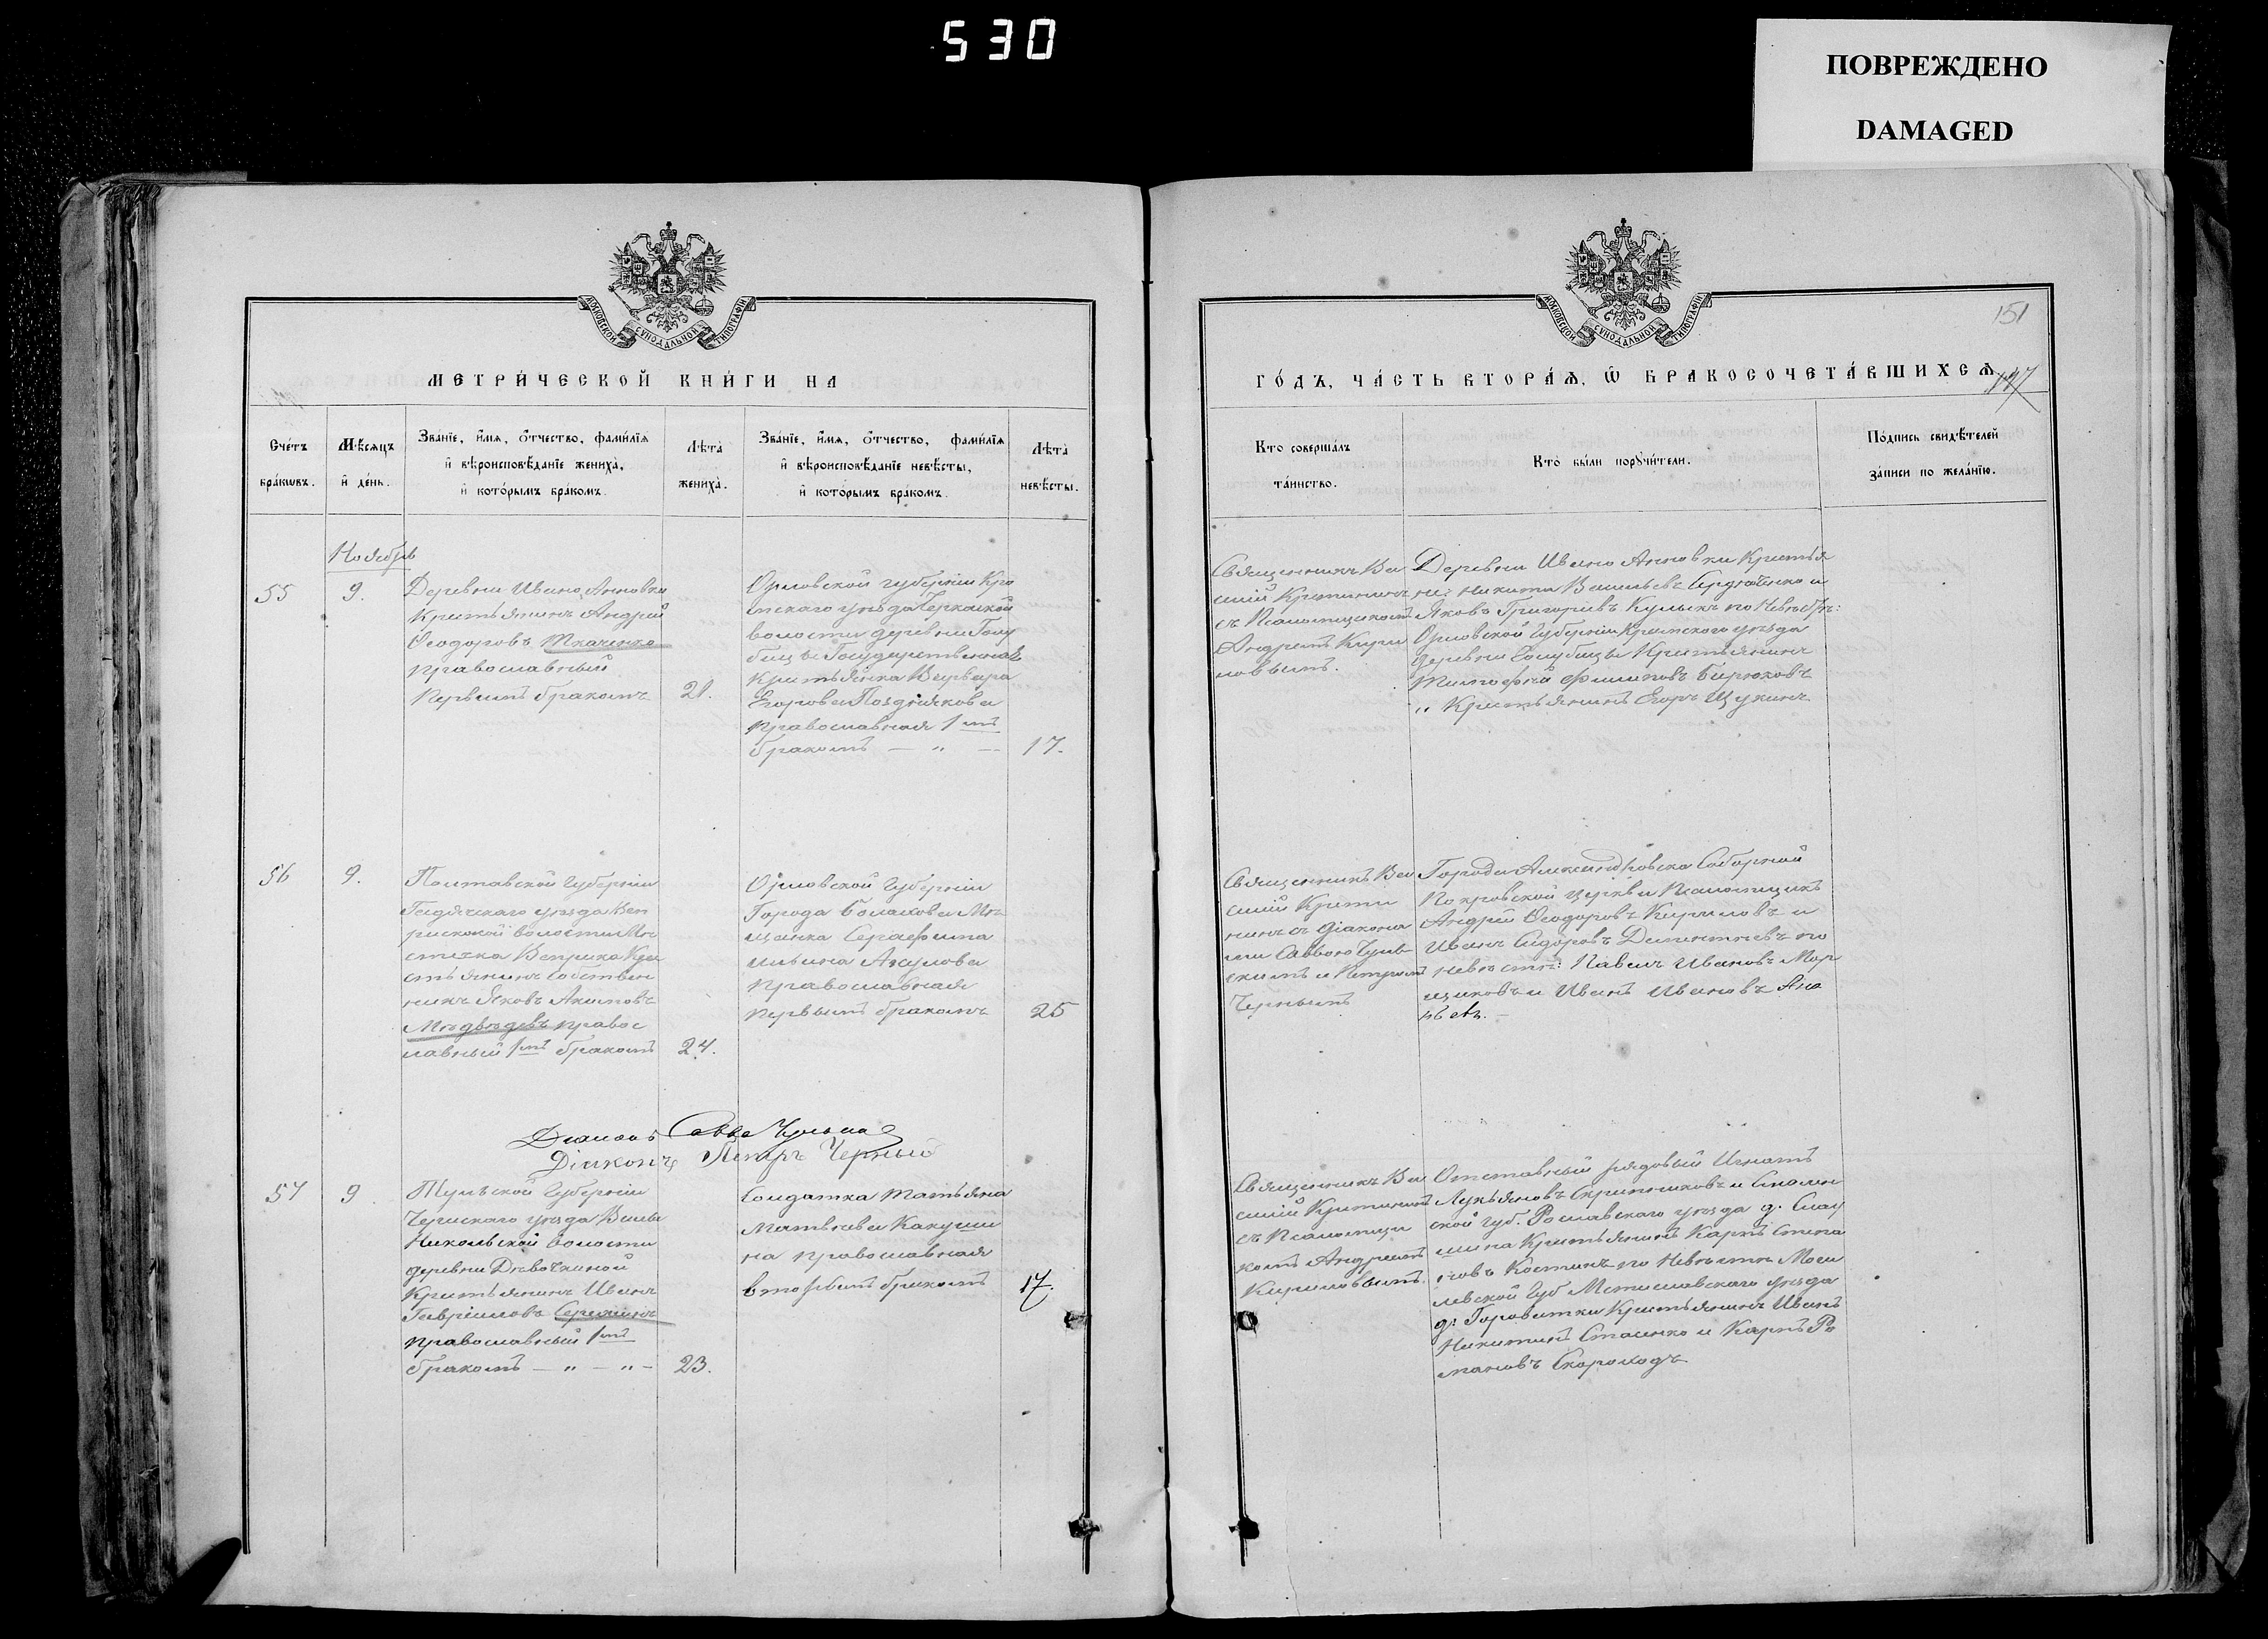 530
ПОВРЕЖДЕНО
DAMAGED
МОСКОВСКОЙ СѴНОДАЛЬНОЙ ТИПОГРАФІИ
МЕТРИ́ЧЕСКОЙ КНИ́ГИ НА
Сче́тъ
бра́кѡвъ.
Мѣ́сѧцъ
и҆ де́нь.
Зва́нїе, и҆́мѧ, ѻ҆́тчество, фами́лїѧ
и҆ вѣроисповѣ́данїе жениха̀,
и҆ кото́рымъ бра́комъ.
Лѣ́та
жениха̀.
Зва́нїе, и҆́мѧ, ѻ҆́тчество, фами́лїѧ
и҆ вѣроисповѣ́данїе невѣ́сты,
и҆ кото́рымъ бра́комъ.
Лѣ́та
невѣ́сты.
Ноябрь
55
9.
Деревни Ивано Анновки
Крестьянинъ Андрей
Ѳеодоровъ Ткаченко
православный
первымъ бракомъ
21.
Орловской губерніи Кро
мскаго уѣзда
волости деревни Голу
бицы Государственная
крестьянка Варвара
Егорова Позднякова
православная 1мъ
бракомъ — " —
17.
56
9.
Полтавской Губерніи
Гадячскаго уѣзда Веп
рикской волости Мѣ
стечка Веприка Кре
стьянинъ собствен
никъ Яковъ Акимовъ
Медвѣдевъ правос
лавный 1мъ бракомъ
24.
Орловской Губерніи
Города Болхова Мѣ
щанка Серафима
Ильина Акулова
православная
первымъ бракомъ
25
Діаконъ Савва Чулька
Діаконъ Петръ Черный
57
9
Тульской Губерніи
Чернскаго уѣзда
Никольской волости
деревни Дѣвочкиной
Крестьянинъ Иванъ
Гавріиловъ Сережинъ
православный 1мъ
бракомъ — " — " —
23.
Солдатка Татьяна
Матвѣева Какуши
на православная
вторымъ бракомъ
17.
151
МОСКОВСКОЙ СѴНОДАЛЬНОЙ ТИПОГРАФІИ
ГО́ДЪ, ЧА́СТЬ ВТОРА́Ѧ, Ѡ҆ БРАКОСОЧЕТА́ВШИХСѦ
147
Кто соверша́лъ
та́инство.
Кто̀ бы́ли порꙋчи́тели.
По́дпись свидѣ́телей
за́писи по жела́нїю.
Священникъ Ва
силій Критининъ
съ Псаломщикомъ
Андреемъ Кири
ловымъ.
Деревни Ивано Анновки Крестья
не: Никита Васильевъ Сердюченко и
Яковъ Григорьевъ Кулыкъ по Невѣстѣ:
Орловской Губерніи Кромского уѣзда
деревни Голубицы Крестьянинъ
Тимофѣй Филиповъ Бирюковъ
" Крестьянинъ Егоръ Щукинъ
Священникъ Ва
силій Крити
нинъ съ діакона
ми Саввою Чуль
кимъ и Петромъ
Чернымъ
Города Александровска Соборной
Покровской церкви Псаломщикъ
Андрей Ѳеодоровъ Кириловъ и
Иванъ Сидоровъ Дементьевъ по
невѣстѣ: Павелъ Ивановъ Мор
щиковъ и Иванъ Ивановъ
Священникъ Ва
силій Критининъ
съ Псаломщи
комъ Андреемъ
Кириловымъ.
Отставный рядовый Игнатъ
Лукьяновъ Скрипниковъ и Смолен
ской губ. Рославскаго уѣзда д.
Крестьянинъ Карпъ Степа
новъ Костинъ по Невѣстѣ Моги
левской Губ Мстиславскаго уѣзда
д: Крестьянинъ Иванъ
Никитинъ Стаенко и Карпъ Ро
мановъ Скороходъ